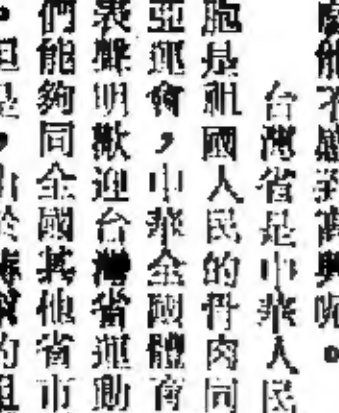 能不感到高興呢。
台灣省是中華人民
胞是祖國人民的骨肉同
亞運會，中華全國體育
表聲明歡迎台灣省運動
們能夠同全國其他省市
是，由於